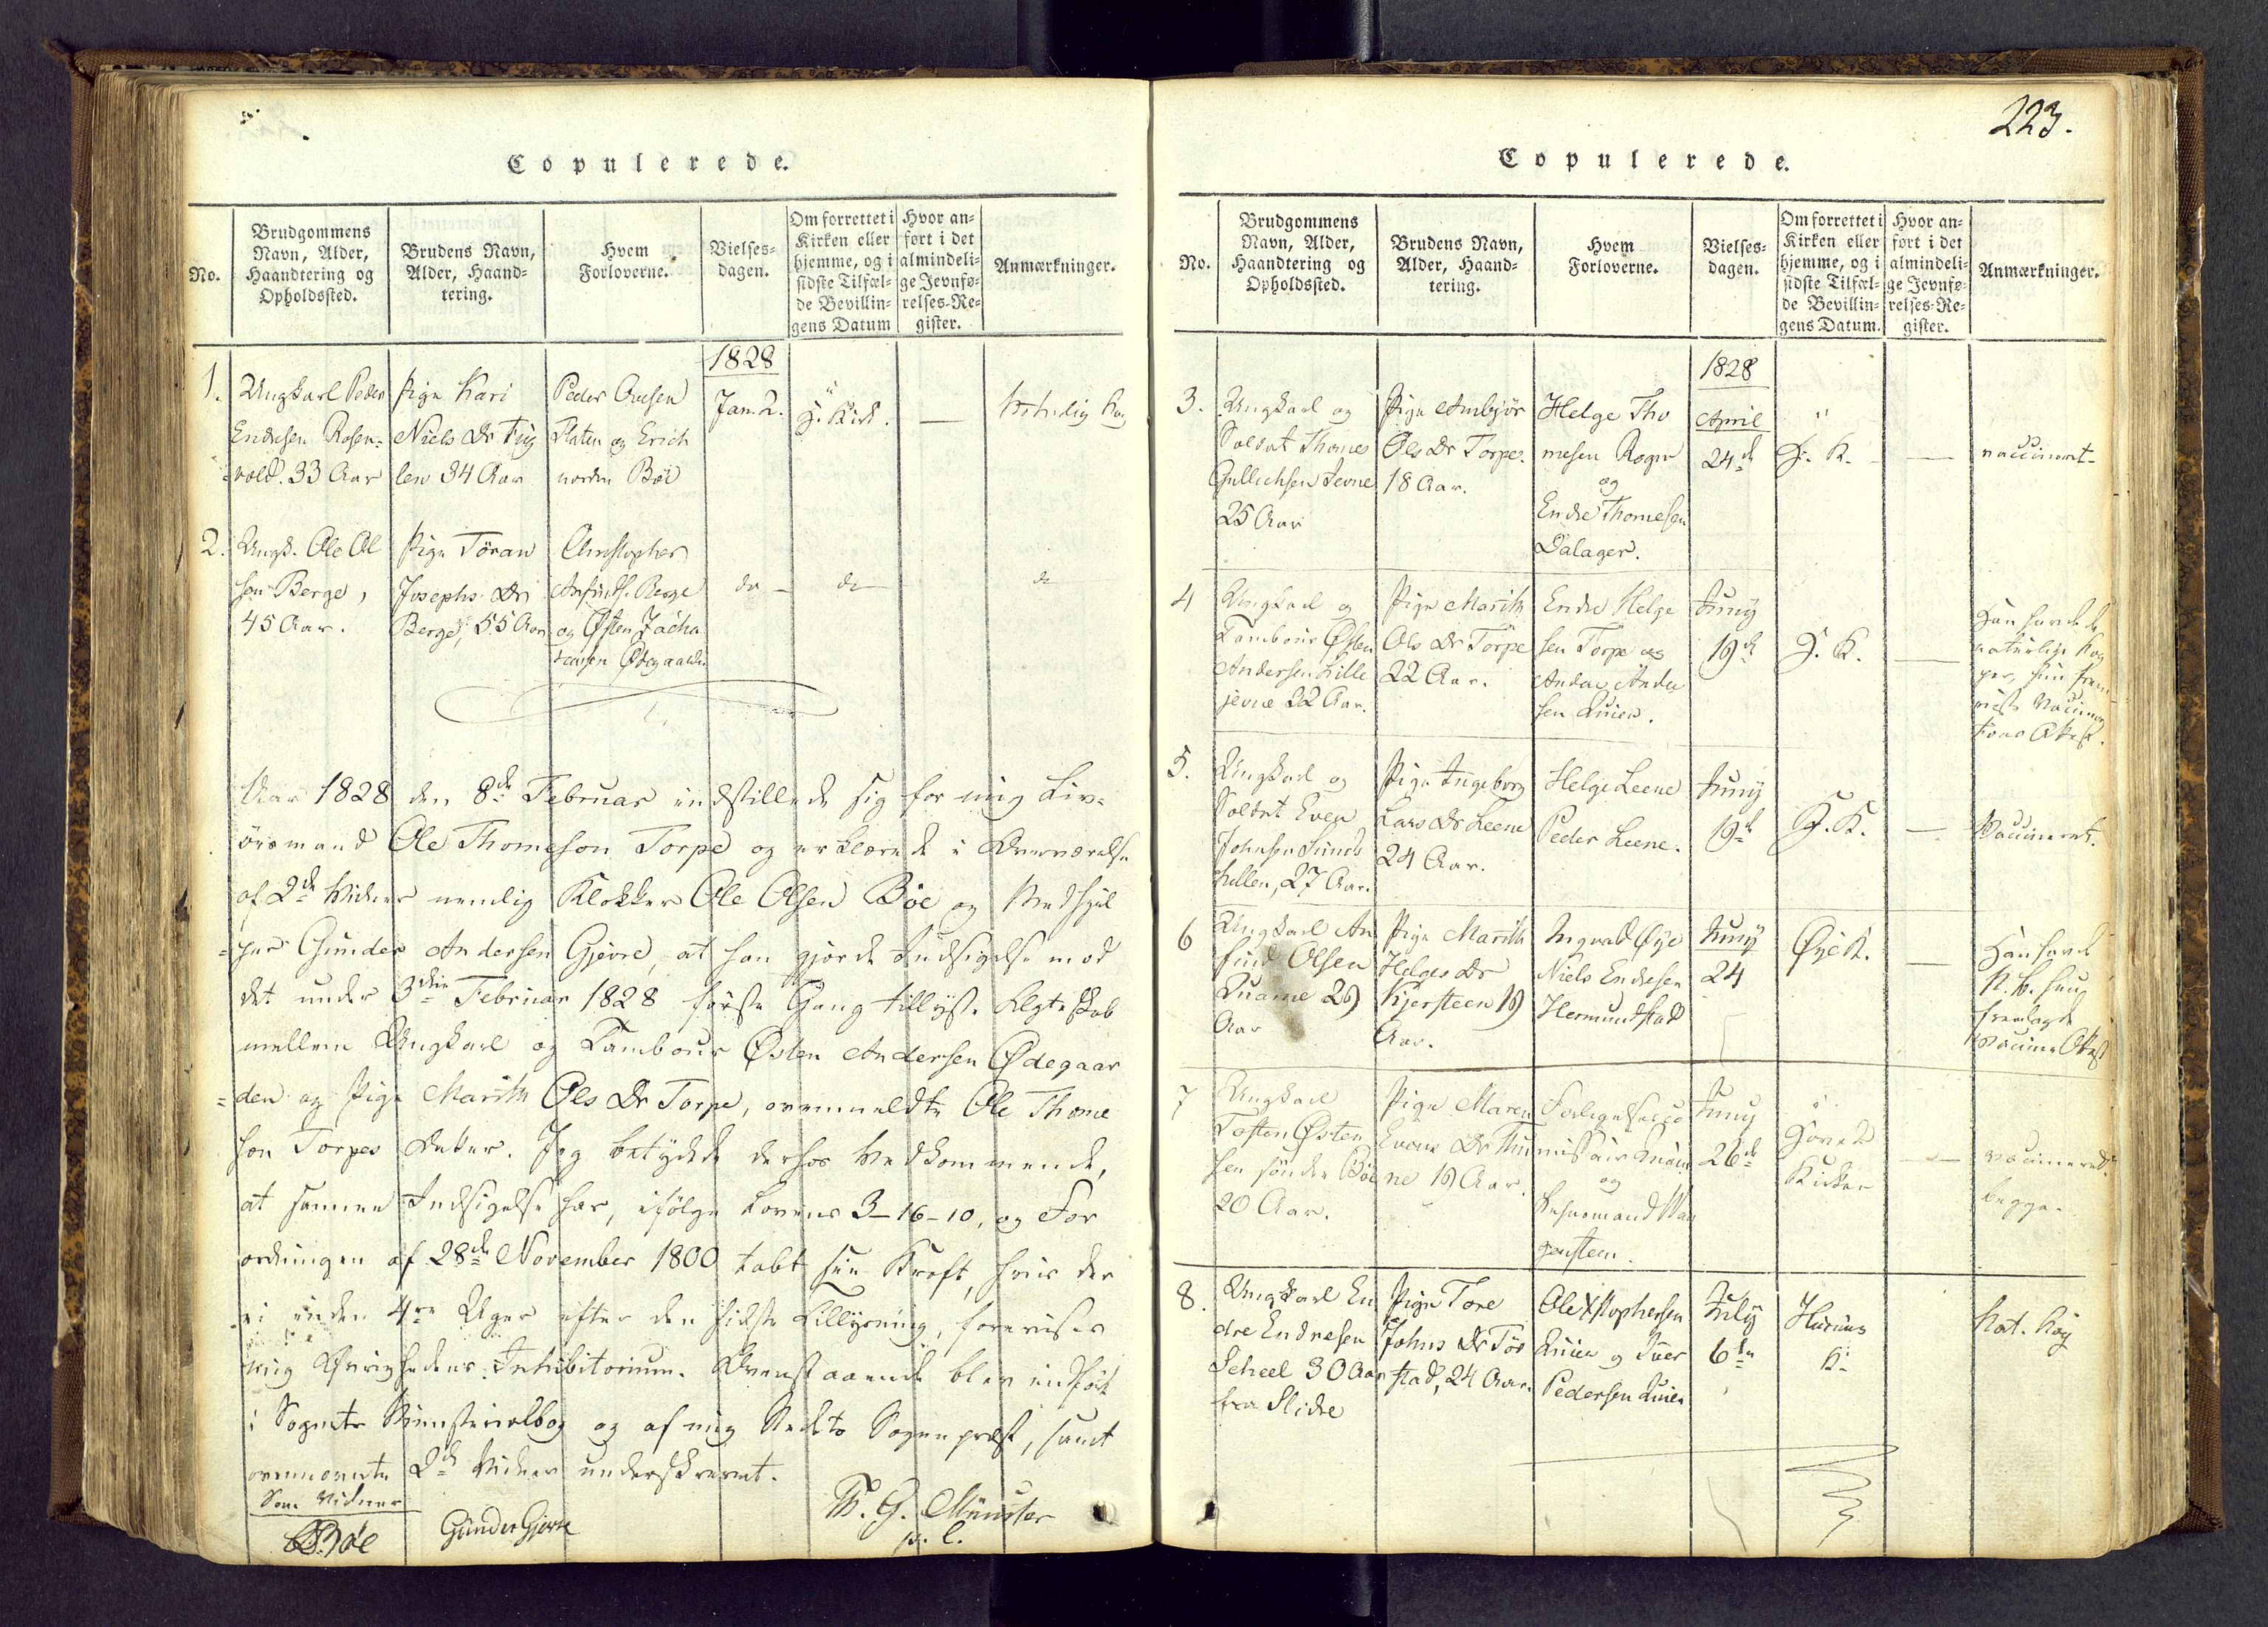 Copulerede.
No.
Brudgommens
Navn, Alder,
Haandtering og
Opholdssted.
Brudens Navn,
Alder, Haand-
tering.
Hvem
Forloverne.
Vielses-
dagen.
Om forrettet i
Kirken eller
hjemme, og i
sidste Tilfæl-
de Bevillin-
gens Datum
Hvor an-
ført i det
almindeli-
ge Jevnfø-
relses-Re-
gister.
Anmærkninger.
1828
1.
Ungkarl Peder
Endresen Rosen-
vold. 33 Aar
Pige Kari
Niels Dr
34 Aar
Peder
og Erich
nordre Böe
Jan. 2.
H. Kirk.
—
2.
Ungk. Ole Ol
sen Berge,
45 Aar.
Pige Töran
Josephs Dr
Berge, 55 Aar
Christopher
Berge
og Østen Zacha
Ødegaarden
do —
do
do
Aar 1828 den 8de Februar indstillede sig for mig
Ole Thomeson Torpe og erklærede i Overværelse
af 2de Vidner nemlig Klokker Ole Olsen Böe og Medhjæl
=per Gunder Andersen Gjevre, at han gjorde Indsigelse mod
det under 3die Februar 1828 første Gang tillyste Ægteskab
mellem Ungkarl og Tambour Østen Andersen Ødegaar
=den og Pige Marith Ols Dr Torpe, ovenmeldte Ole Thome
son Torpes Datter. Jeg betydede derhos Vedkommende,
at samme Indsigelse har, ifølge Lovens 3-16-10, og For
ordningen af 28de November 1800 tabt sin Kraft, hvis der
ei inden 4re Uger efter den sidste Tillysning, forevises
mig Øvrighedens Inhibitorium. Ovenstaaende blev indført
i Sognets Ministerialbog og af mig Stedets Sognepræst, samt
ovennævnte 2de Vidner underskrevet.
Som Vidner
Böe
Gunder Gjevre
Münster
p. l.
223.
Copulerede.
No.
Brudgommens
Navn, Alder,
Haandtering og
Opholdssted.
Brudens Navn,
Alder, Haand-
tering.
Hvem
Forloverne.
Vielses-
dagen.
Om forrettet i
Kirken eller
hjemme, og i
sidste Tilfæl-
de Bevillin-
gens Datum.
Hvor an-
ført i det
almindeli-
ge Jevnfø-
relses-Re-
gister.
Anmærkninger.
1828
3.
Ungkarl og
Soldat Thomes
Gullichsen Jevne
25 Aar
Pige Ambjör
Ols Dr Torpe.
18 Aar.
Helge Tho
mesen Rogn
og
Endre Thomesen
Dalager.
April
24de
H. K.
—
vaccineret
4
Ungkarl og
Tambour Østen
Andersen Lille
jevne 22 Aar.
Pige Marith
Ols Dr Torpe
22 Aar.
Endre Helge
sen Torpe og
Andre Ande
sen
Juny
19de
H. K.
—
Han havde de
naturlige Kop
per, hun frem
viste Vaccina
tions Attest.
5.
Ungkarl og
Soldat Even
Johnsen
27 Aar.
Pige Ingeborg
Lars Dr Leene
24 Aar.
Helge Leene
Peder Leene.
Juny
19de
H. K.
—
Vaccineret.
6
Ungkarl An
find Olsen
Quame 29
Aar
Pige Marith
Helges Dr
Kjersteen 19
Aar.
Ingvald Øye
Niels Endresen
Hermundstad
Juny
24
Øye K.
—
Han havde
N. K. hun
fremlagde
Vaccine Attest
7
Ungkarl
Torsten Østen
sen söndre Böe
20 Aar.
Pige Maren
Evens Dr
19 Aar.
Forligelsesco
missair
og
Juny
26de
Hoved
Kirken
—
vaccineret
begge.
8.
Ungkarl En
dre Endresen
Scheel 30 Aar
fra Slidre
Pige Tore
Johns Dr Tör
stad, 24 Aar.
Ole Xstophersen
og Iver
Pedersen
July
6te
Hurums
K.
Nat. Kop